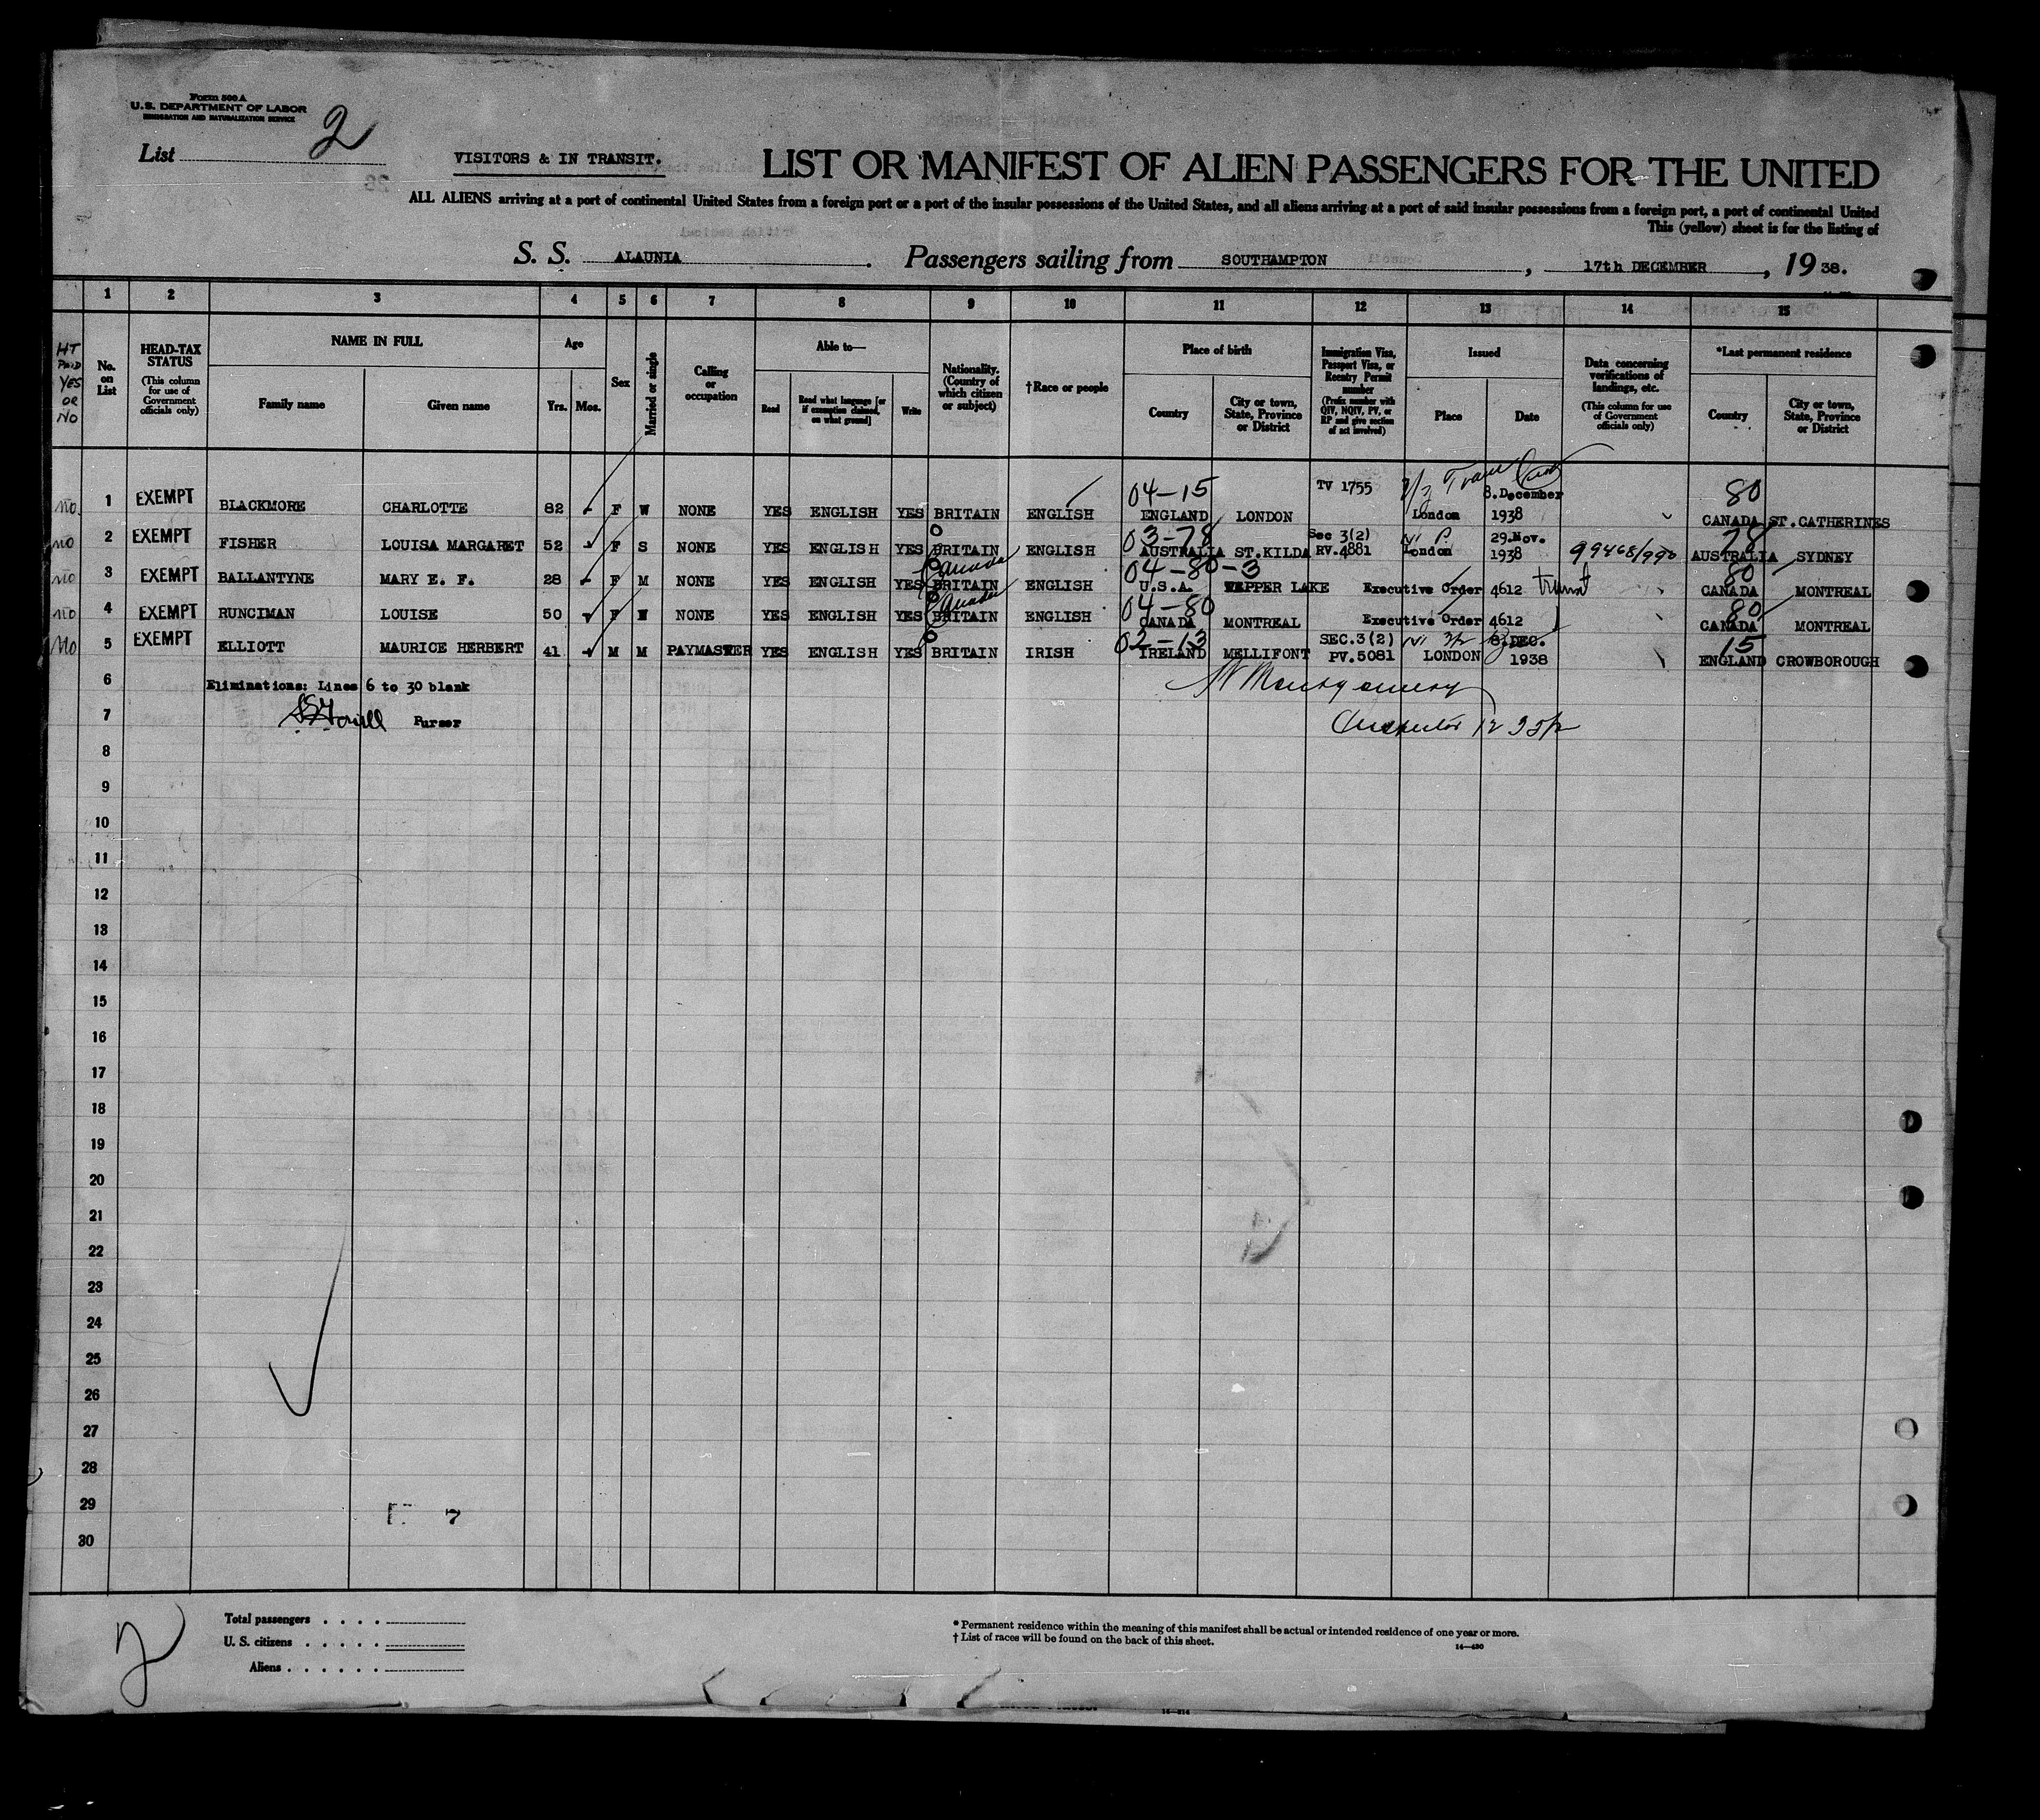 Form 500 A
U.S. DEPARTMENT OF LABOR
IMMIGRATION AND NATURALIZATION SERVICE
List 2
VISITORS & IN TRANSIT.
LIST OR MANIFEST OF ALIEN PASSENGERS FOR THE UNITED
ALL ALIENS arriving at a port of continental United States from a foreign port or a port of the insular possessions of the United States, and all aliens arriving at a port of said insular possessions from a foreign port, a port of continental United
This (yellow) sheet is for the listing of
S. S. ALAUNIA. Passengers sailing from SOUTHAMPTON, 17th DECEMBER, 19 38.
1 2 3 4 5 6 7 8 9 10 11 12 13 14 15
HT PAID YES OR NO
No. on List
HEAD-TAX STATUS (This column for use of Government officials only)
NAME IN FULL
Family name
Given name
Age
Yrs. Mos.
Sex
Married or single
Calling or occupation
Able to—
Read
Read what language [or if exemption claimed, on what ground]
Write
Nationality. (Country of which citizen or subject)
†Race or people
Place of birth
Country
City or town, State, Province or District
Immigration Visa, Passport Visa, or Reentry Permit number (Prefix number with QIV, NQIV, PV, or RP and give section of act involved)
Issued
Place
Date
Data concerning verifications of landings, etc. (This column for use of Government officials only)
*Last permanent residence
Country
City or town, State, Province or District
no 1 EXEMPT BLACKMORE CHARLOTTE 82 - F W NONE YES ENGLISH YES BRITAIN ENGLISH 04-15 ENGLAND LONDON TV 1755 London 8.December 1938 80 CANADA ST.CATHERINES
no 2 EXEMPT FISHER LOUISA MARGARET 52 - F S NONE YES ENGLISH YES BRITAIN ENGLISH 03-78 AUSTRALIA ST.KILDA Sec 3(2) RV.4881 London 29.Nov. 1938 99468/990 78 AUSTRALIA SYDNEY
no 3 EXEMPT BALLANTYNE MARY E. F. 28 - F M NONE YES ENGLISH YES Canada BRITAIN ENGLISH 04-80-3 U.S.A. TUPPER LAKE Executive Order 4612 80 CANADA MONTREAL
no 4 EXEMPT RUNCIMAN LOUISE 50 - F W NONE YES ENGLISH YES Canada BRITAIN ENGLISH 04-80 CANADA MONTREAL Executive Order 4612 80 CANADA MONTREAL
No 5 EXEMPT ELLIOTT MAURICE HERBERT 41 - M M PAYMASTER YES ENGLISH YES BRITAIN IRISH 02-13 IRELAND MELLIFONT SEC.3(2) PV.5081 LONDON 8.DEC. 1938 15 ENGLAND CROWBOROUGH
6 Eliminations: Lines 6 to 30 blank
Montgomery
7 Purser
8
9
10
11
12
13
14
15
16
17
18
19
20
21
22
23
24
25
26
27
28
29
30
2
Total passengers . . . .
U. S. citizens . . . . .
Aliens . . . . . .
* Permanent residence within the meaning of this manifest shall be actual or intended residence of one year or more.
† List of races will be found on the back of this sheet.
14—430